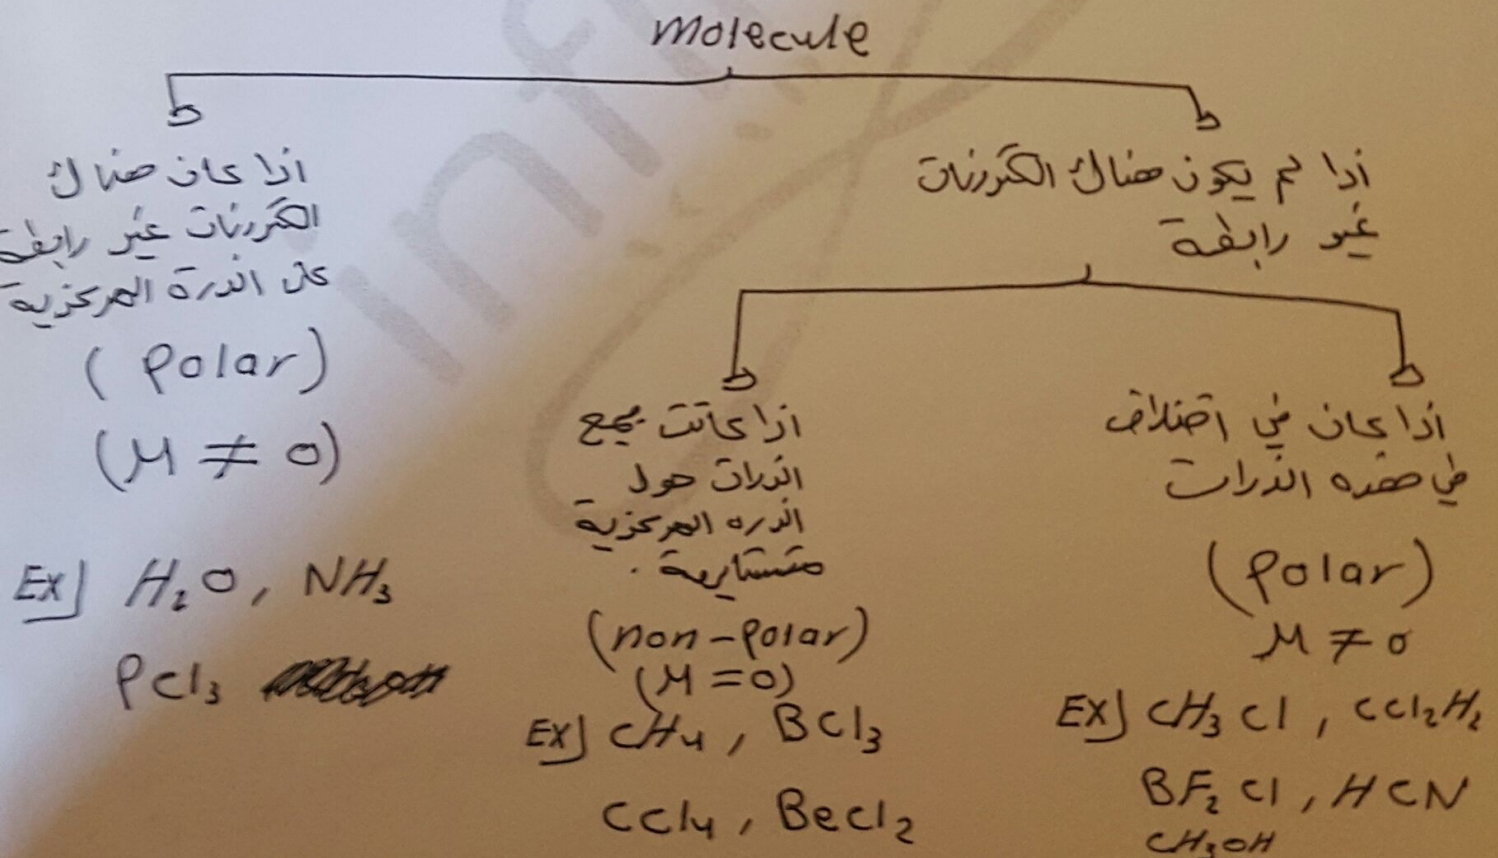 Molecule
اذا كان هناك
الكترونات غير رابطة
على الذرة المركزية
(Polar)
(M ≠ 0)
Ex] H₂O, NH₃
PCl₃
اذا لم يكون هناك الكترونات
غير رابطة
اذا كانت جميع
الذرات حول
الذره المركزية
متساوية .
(non-Polar)
(M = 0)
Ex] CH₄, BCl₃
CCl₄, BeCl₂
اذا كان في اختلاف
في هذه الذرات
(Polar)
M ≠ 0
Ex] CH₃Cl, CCl₂H₂
BF₂Cl, HCN
CH₃OH
inf